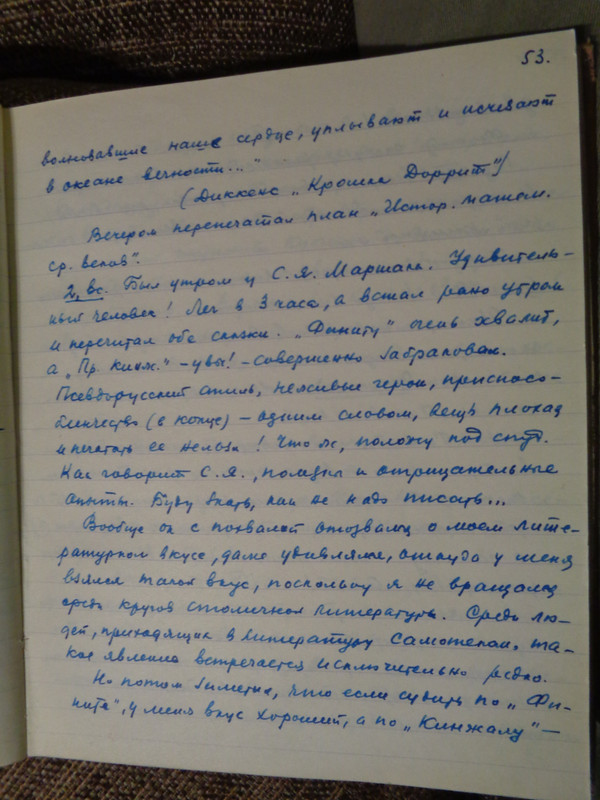 53.
волновавшие наше сердце, уплывают и исчезают
в океане вечности..."
(Диккенс „Крошка Доррит")
Вечером перепечатал план „Истор. матем.
ср. веков".
2, вс. Был утром у С.Я. Маршака. Удивитель-
ный человек! Лег в 3 часа, а встал рано утром
и перечитал обе сказки. „Финиту" очень хвалит,
а „Пр. кинж." – увы! – совершенно забраковал.
Псевдорусский стиль, неживые герои, приспосо-
бленчество (в конце) – одним словом, вещь плохая
и печатать ее нельзя! Что ж, положу под спуд.
Как говорит С.Я., полезны и отрицательные
опыты. Буду знать, как не надо писать...
Вообще он с похвалой отозвался о моем лите-
ратурном вкусе, даже удивлялся, откуда у меня
взялся такой вкус, поскольку я не вращался
среди кругов столичной литературы. Среди лю-
дей, приходящих в литературу самотеком, та-
кое явление встречается исключительно редко.
Но потом заметил, что если судить по „Фи-
ните", у меня вкус хороший, а по „Кинжалу" –